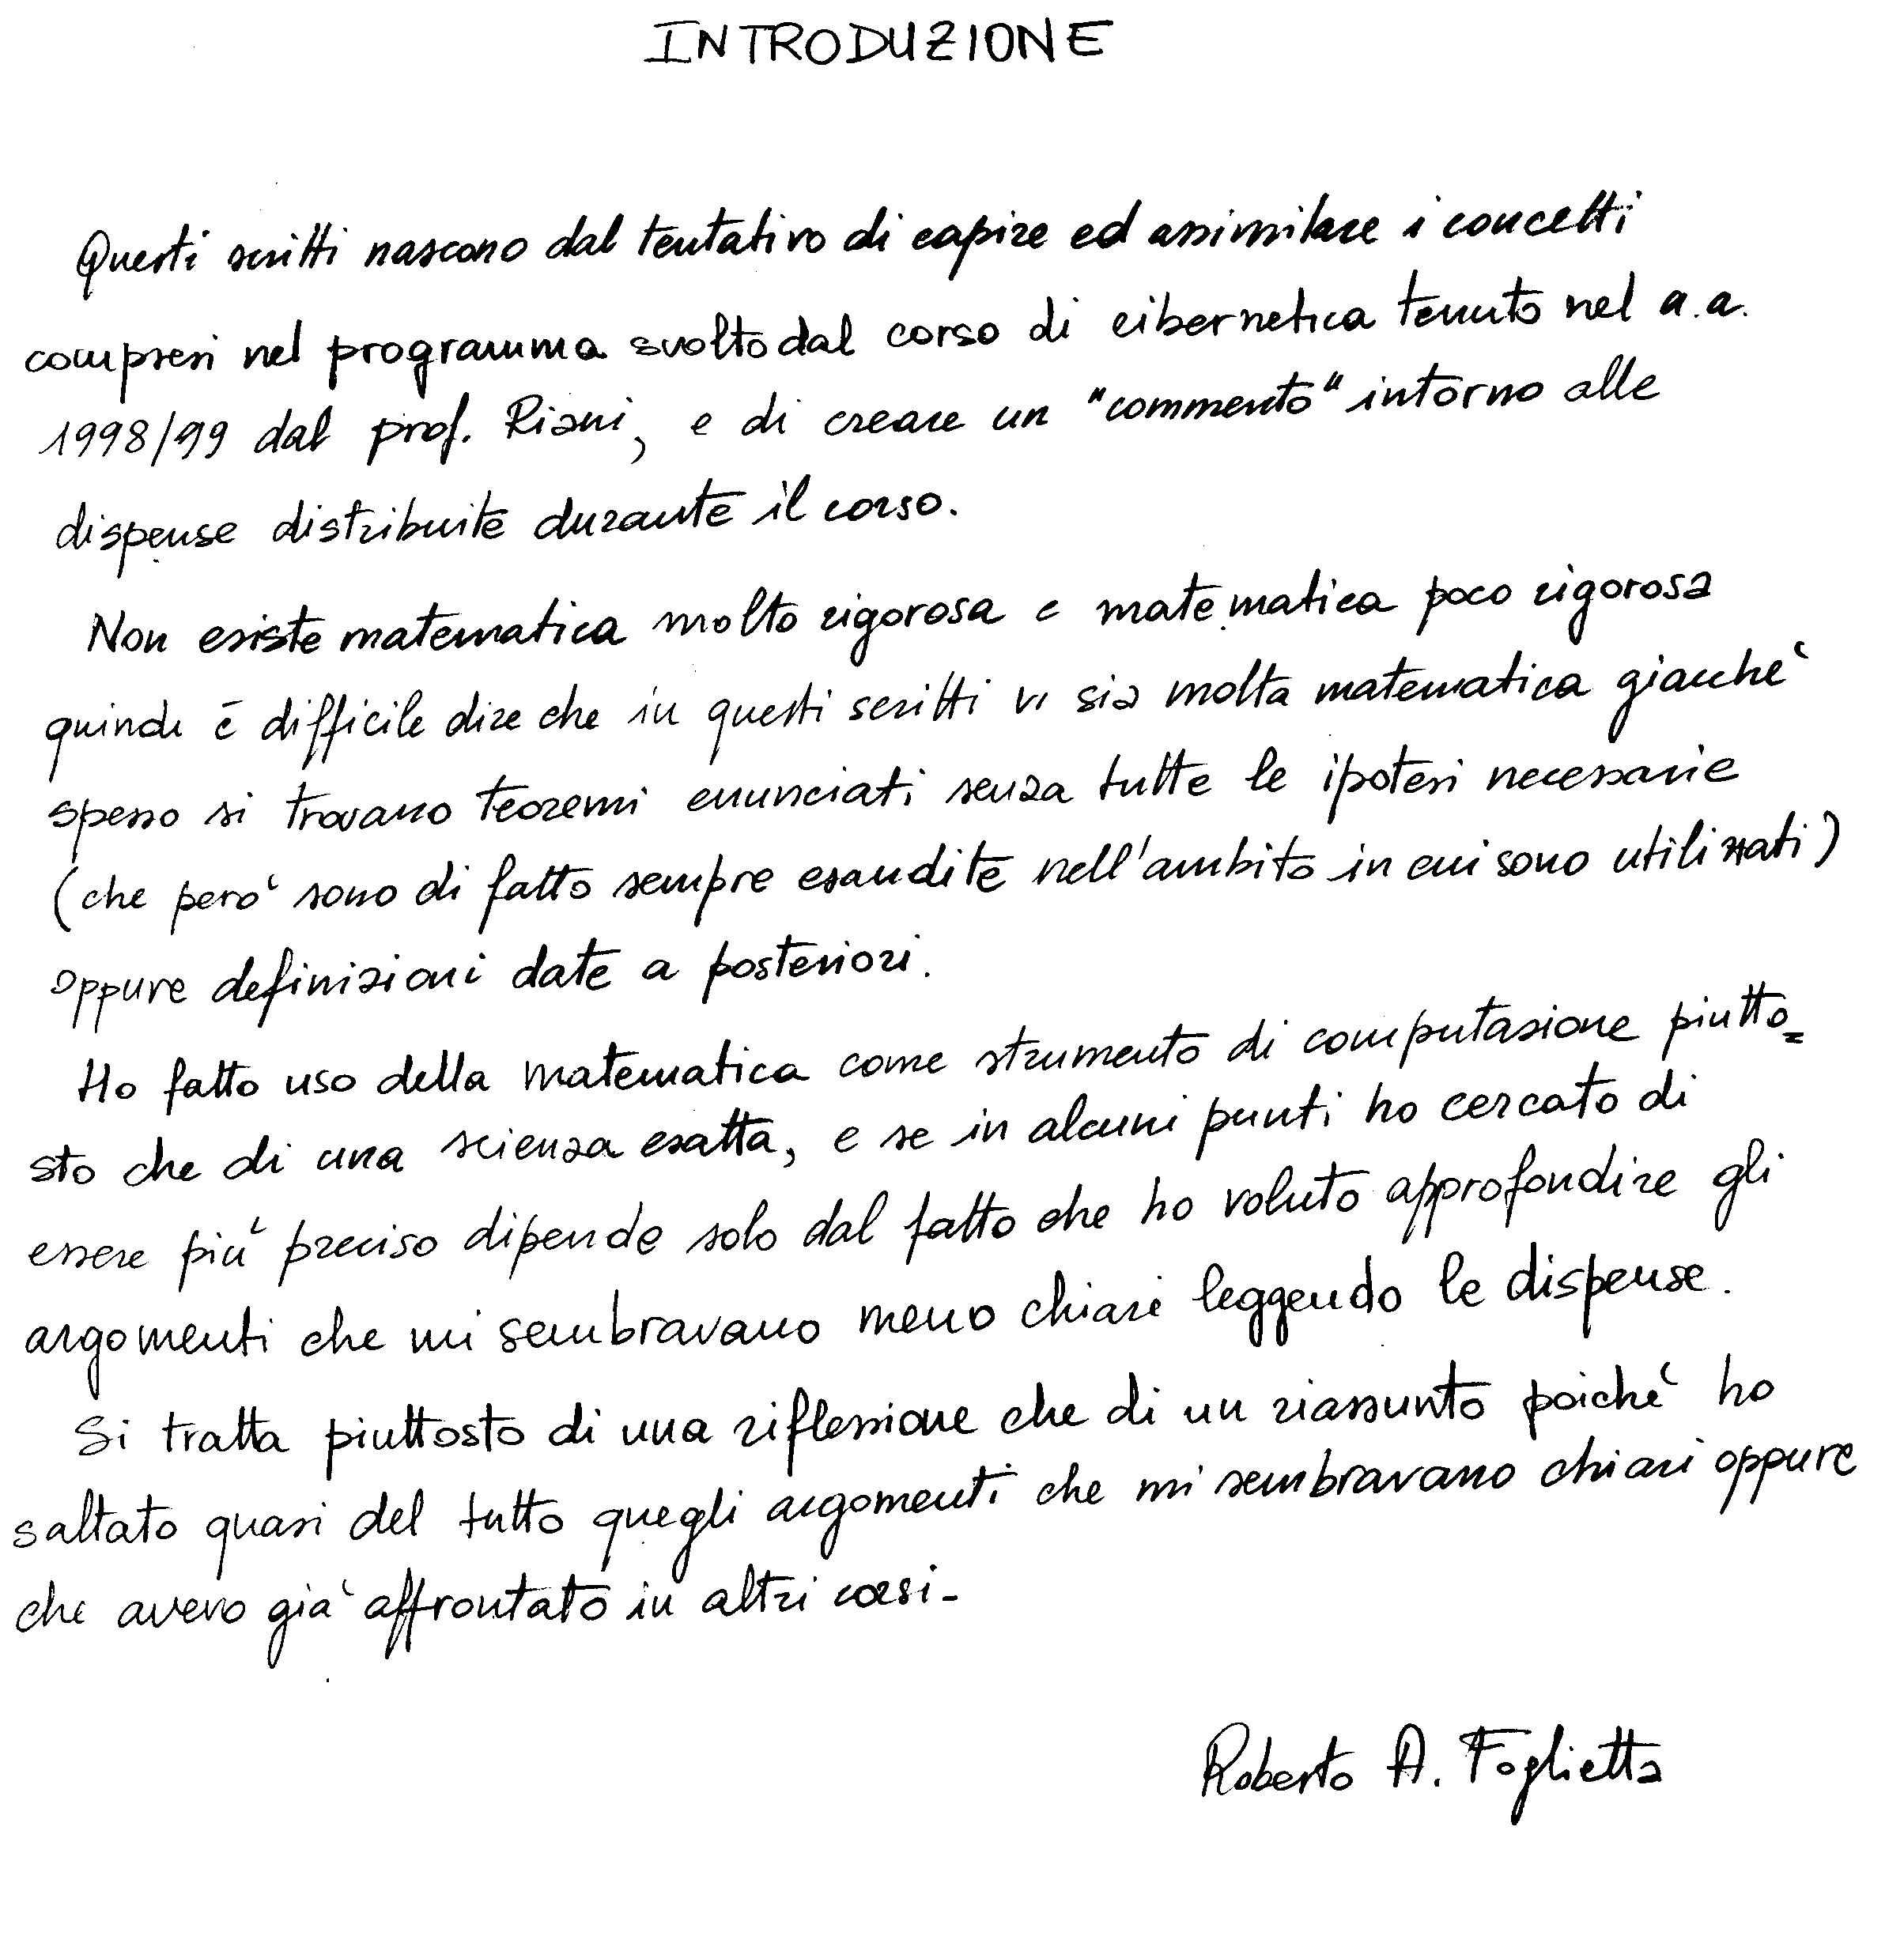 INTRODUZIONE
Questi scritti nascono dal tentativo di capire ed assimilare i concetti
compresi nel programma svolto dal corso di cibernetica tenuto nel a.a.
1998/99 dal prof. Riani, e di creare un "commento" intorno alle
dispense distribuite durante il corso.
Non esiste matematica molto rigorosa e matematica poco rigorosa
quindi è difficile dire che in questi scritti vi sia molta matematica giacchè
spesso si trovano teoremi enunciati senza tutte le ipotesi necessarie
(che però sono di fatto sempre esaudite nell'ambito in cui sono utilizzati)
oppure definizioni date a posteriori.
Ho fatto uso della matematica come strumento di computazione piutto=
sto che di una scienza esatta, e se in alcuni punti ho cercato di
essere più preciso dipende solo dal fatto che ho voluto approfondire gli
argomenti che mi sembravano meno chiari leggendo le dispense.
Si tratta piuttosto di una riflessione che di un riassunto poichè ho
saltato quasi del tutto quegli argomenti che mi sembravano chiari oppure
che avevo già affrontato in altri corsi-
Roberto A. Foglietta